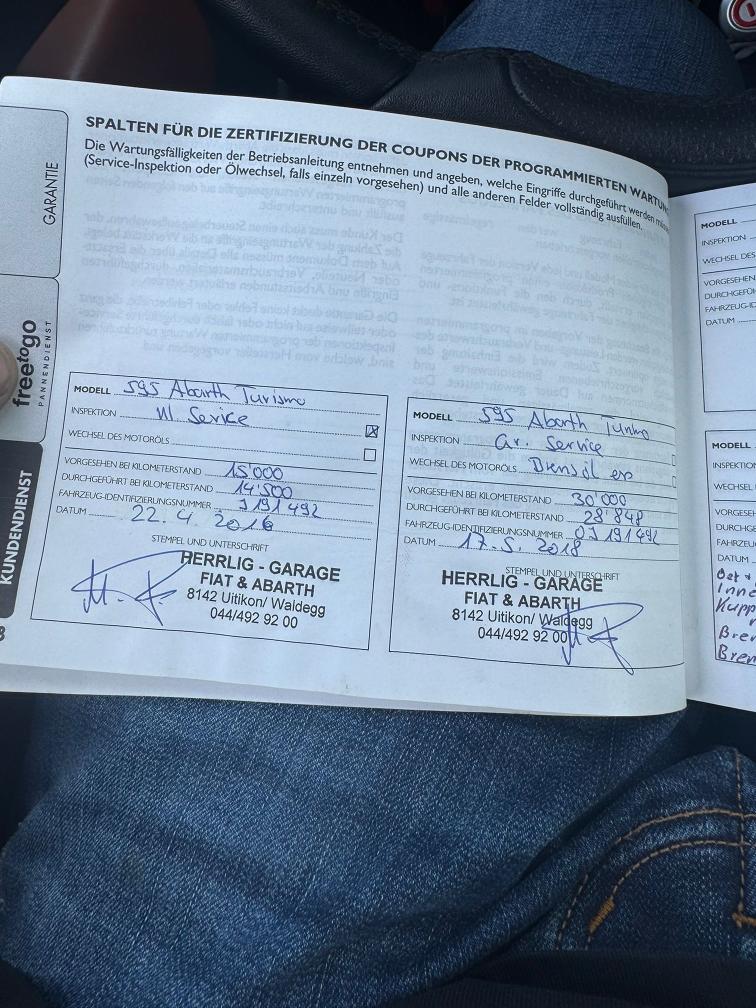 SPALTEN FÜR DIE ZERTIFIZIERUNG DER COUPONS DER PROGRAMMIERTEN
Die Wartungsfälligkeiten der Betriebsanleitung entnehmen und angeben, welche Eingriffe durchgeführt werden
(Service-Inspektion oder Ölwechsel, falls einzeln vorgesehen) und alle anderen Felder vollständig ausfüllen.
GARANTIE
freetogo
PANNENDIENST
KUNDENDIENST
MODELL 595 Abarth Turismo
INSPEKTION Service
WECHSEL DES MOTORÖLS
VORGESEHEN BEI KILOMETERSTAND 15'000
DURCHGEFÜHRT BEI KILOMETERSTAND 14'500
FAHRZEUG-IDENTIFIZIERUNGSNUMMER J191492
DATUM 22. 4. 2016
STEMPEL UND UNTERSCHRIFT
HERRLIG - GARAGE
FIAT & ABARTH
8142 Uitikon/ Waldegg
044/492 92 00
MODELL 595 Abarth Turismo
INSPEKTION Gr. Service
WECHSEL DES MOTORÖLS
VORGESEHEN BEI KILOMETERSTAND 30'000
DURCHGEFÜHRT BEI KILOMETERSTAND 28'848
FAHRZEUG-IDENTIFIZIERUNGSNUMMER 0J191492
DATUM 17. 5. 2018
STEMPEL UND UNTERSCHRIFT
HERRLIG - GARAGE
FIAT & ABARTH
8142 Uitikon/ Waldegg
044/492 92 00
MODELL
INSPEKTION
WECHSEL DES
VORGESEHEN
DATUM
MODELL
DATUM